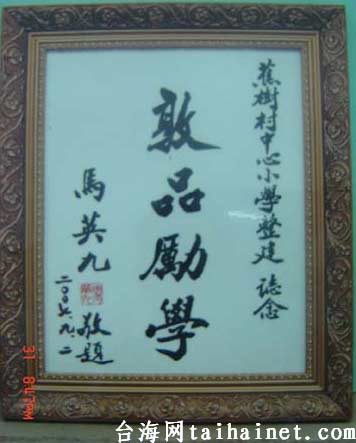 蕉樹村中心小學整建 誌念
敦品勵學
馬英九 敬題
二〇〇六.九.二
31 8:07PM
台海网taihainet.com